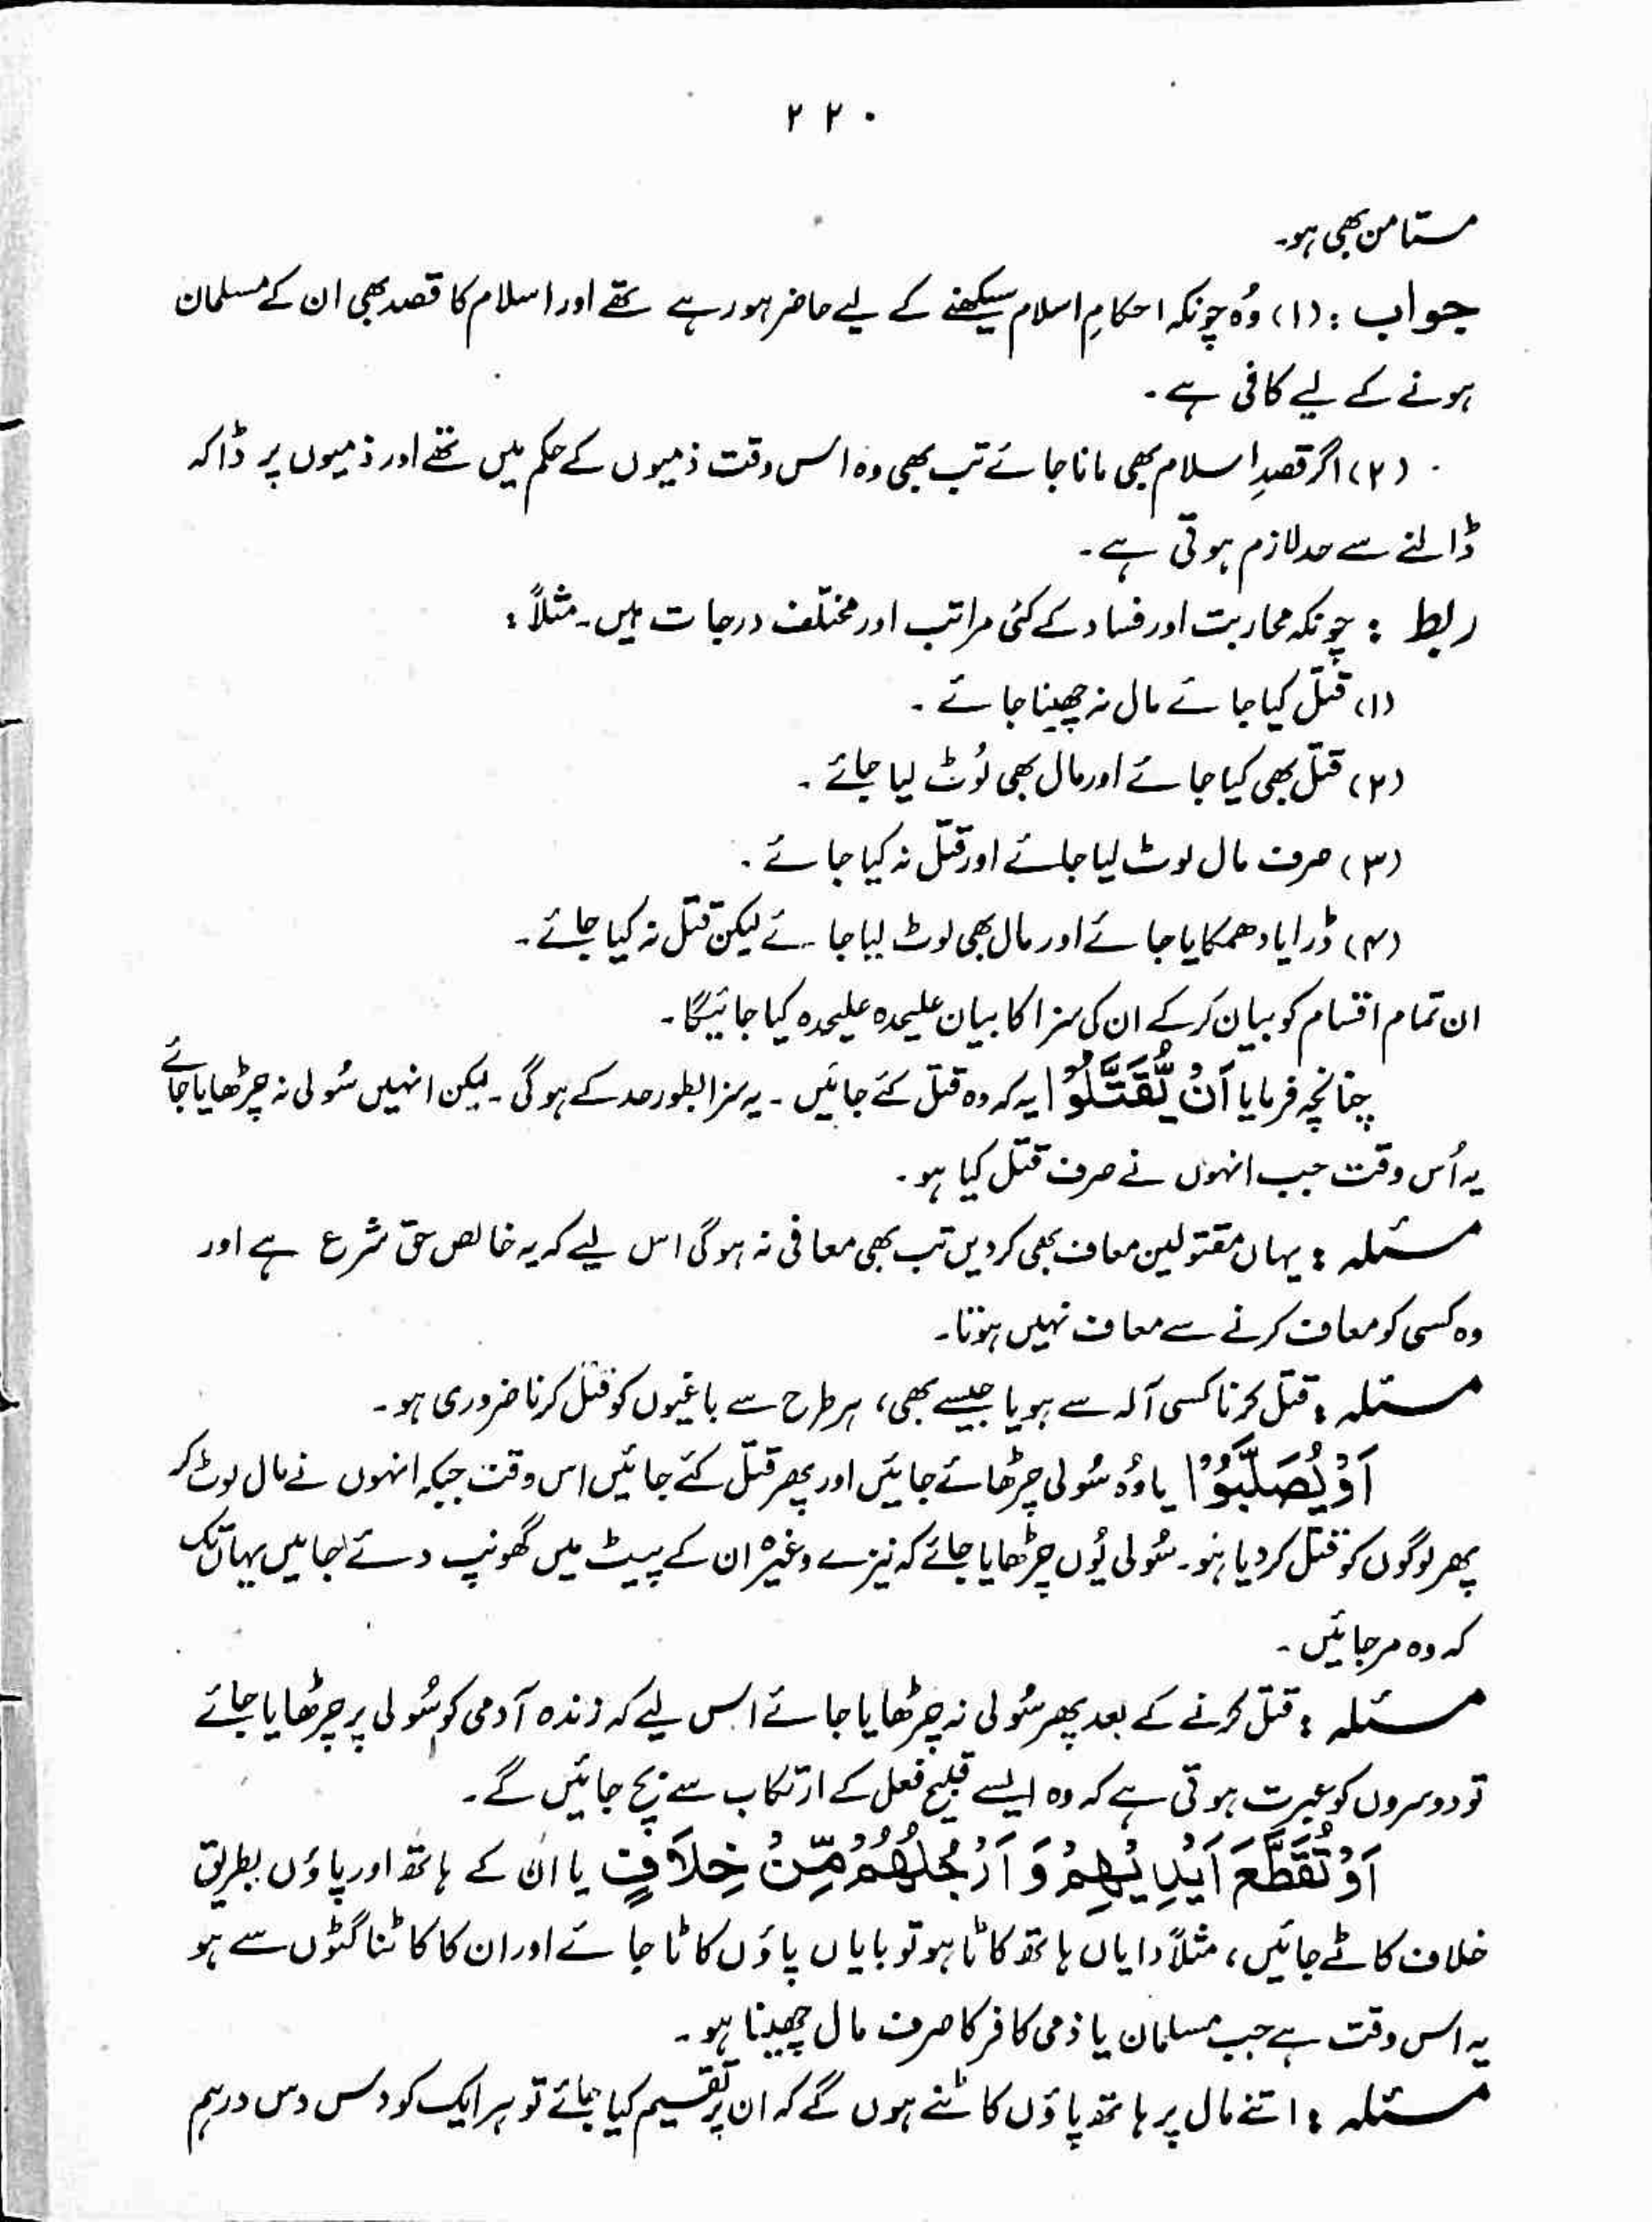 ۲۲۰
مستامن بھی ہو۔
جواب : (۱) وُہ چونکہ احکامِ اسلام سیکھنے کے لیے حاضر ہو رہے تھے اور اسلام کا قصد بھی ان کے مسلمان
ہونے کے لیے کافی ہے ۔
(۲) اگر قصدِ اسلام بھی مانا جائے تب بھی وہ اس وقت ذمیوں کے حکم میں تھے اور ذمیوں پر ڈاکہ
ڈالنے سے حد لازم ہوتی ہے ۔
ربط : چونکہ محاربت اور فساد کے کئی مراتب اور مختلف درجات ہیں۔ مثلاً :
(۱) قتل کیا جائے مال نہ چھینا جائے ۔
(۲) قتل بھی کیا جائے اور مال بھی لُوٹ لیا جائے ۔
(۳) صرف مال لوٹ لیا جائے اور قتل نہ کیا جائے ۔
(۴) ڈرایا دھمکایا جائے اور مال بھی لوٹ لیا جائے لیکن قتل نہ کیا جائے ۔
ان تمام اقسام کو بیان کر کے ان کی سزا کا بیان علیحدہ علیحدہ کیا جائیگا ۔
چنانچہ فرمایا اَنْ یُّقَتَّلُوْٓا یہ کہ وہ قتل کئے جائیں ۔ یہ سزا بطور حد کے ہو گی ۔ لیکن انہیں سُولی نہ چڑھایا جائے
یہ اُس وقت جب انہوں نے صرف قتل کیا ہو ۔
مسئلہ : یہاں مقتولین معاف بھی کر دیں تب بھی معافی نہ ہو گی اس لیے کہ یہ خالص حق شرع ہے اور
وہ کسی کو معاف کرنے سے معاف نہیں ہوتا۔
مسئلہ : قتل کرنا کسی آلہ سے ہو یا جیسے بھی، ہر طرح سے باغیوں کو قتل کرنا ضروری ہو ۔
اَوْ یُصَلَّبُوْٓا یا وُہ سُولی چڑھائے جائیں اور پھر قتل کئے جائیں اس وقت جبکہ انہوں نے مال لوٹ کر
پھر لوگوں کو قتل کر دیا ہو۔ سُولی یُوں چڑھایا جائے کہ نیزے وغیرہ ان کے پیٹ میں گھونپ دئے جائیں یہاں تک
کہ وہ مر جائیں ۔
مسئلہ : قتل کرنے کے بعد پھر سُولی نہ چڑھایا جائے اس لیے کہ زندہ آدمی کو سُولی پر چڑھایا جائے
تو دوسروں کو عبرت ہوتی ہے کہ وہ ایسے قبیح فعل کے ارتکاب سے بچ جائیں گے ۔
اَوْ تُقَطَّعَ اَیْدِیْهِمْ وَ اَرْجُلُهُمْ مِّنْ خِلَافٍ یا ان کے ہاتھ اور پاؤں بطریق
خلاف کاٹے جائیں ، مثلاً دایاں ہاتھ کاٹا ہو تو بایاں پاؤں کاٹا جائے اور ان کا کاٹنا گٹوں سے ہو
یہ اس وقت ہے جب مسلمان یا ذمی کافر کا صرف مال چھینا ہو ۔
مسئلہ : اتنے مال پر ہاتھ پاؤں کاٹنے ہوں گے کہ ان پر تقسیم کیا جائے تو ہر ایک کو دس دس درہم